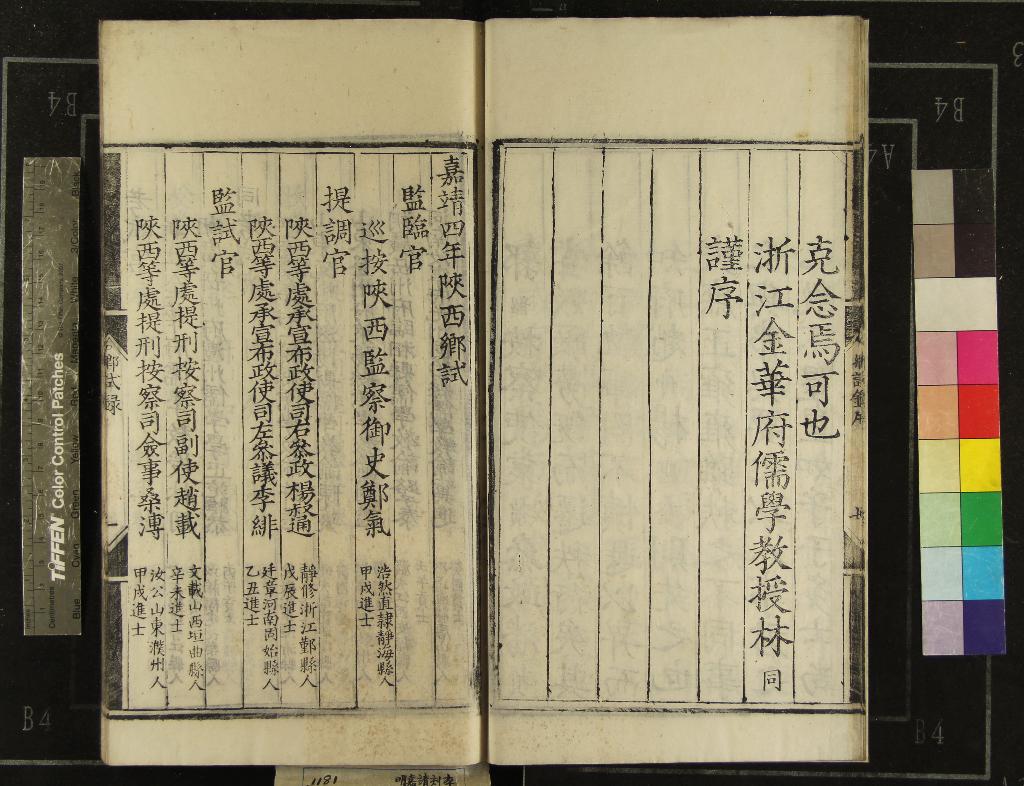 克念焉可也
浙江金華府儒學教授林同
謹序
嘉靖四年陜西鄉試
監臨官
巡按陜西監察御史鄭氣
浩然直隸靜海縣人
甲戌進士
提調官
陜西等處承宣布政使司右叅政楊
靜修浙江鄞縣人
戊辰進士
陜西等處承宣布政使司左叅議李緋
廷章河南固始縣人
乙丑進士
監試官
陜西等處提刑按察司副使趙載
文載山西垣曲縣人
辛未進士
陜西等處提刑按察司僉事桑溥
汝公山東濮州人
甲戌進士
鄉試錄
B4
B4
B4
B4
TIFFEN Color Control Patches
1181